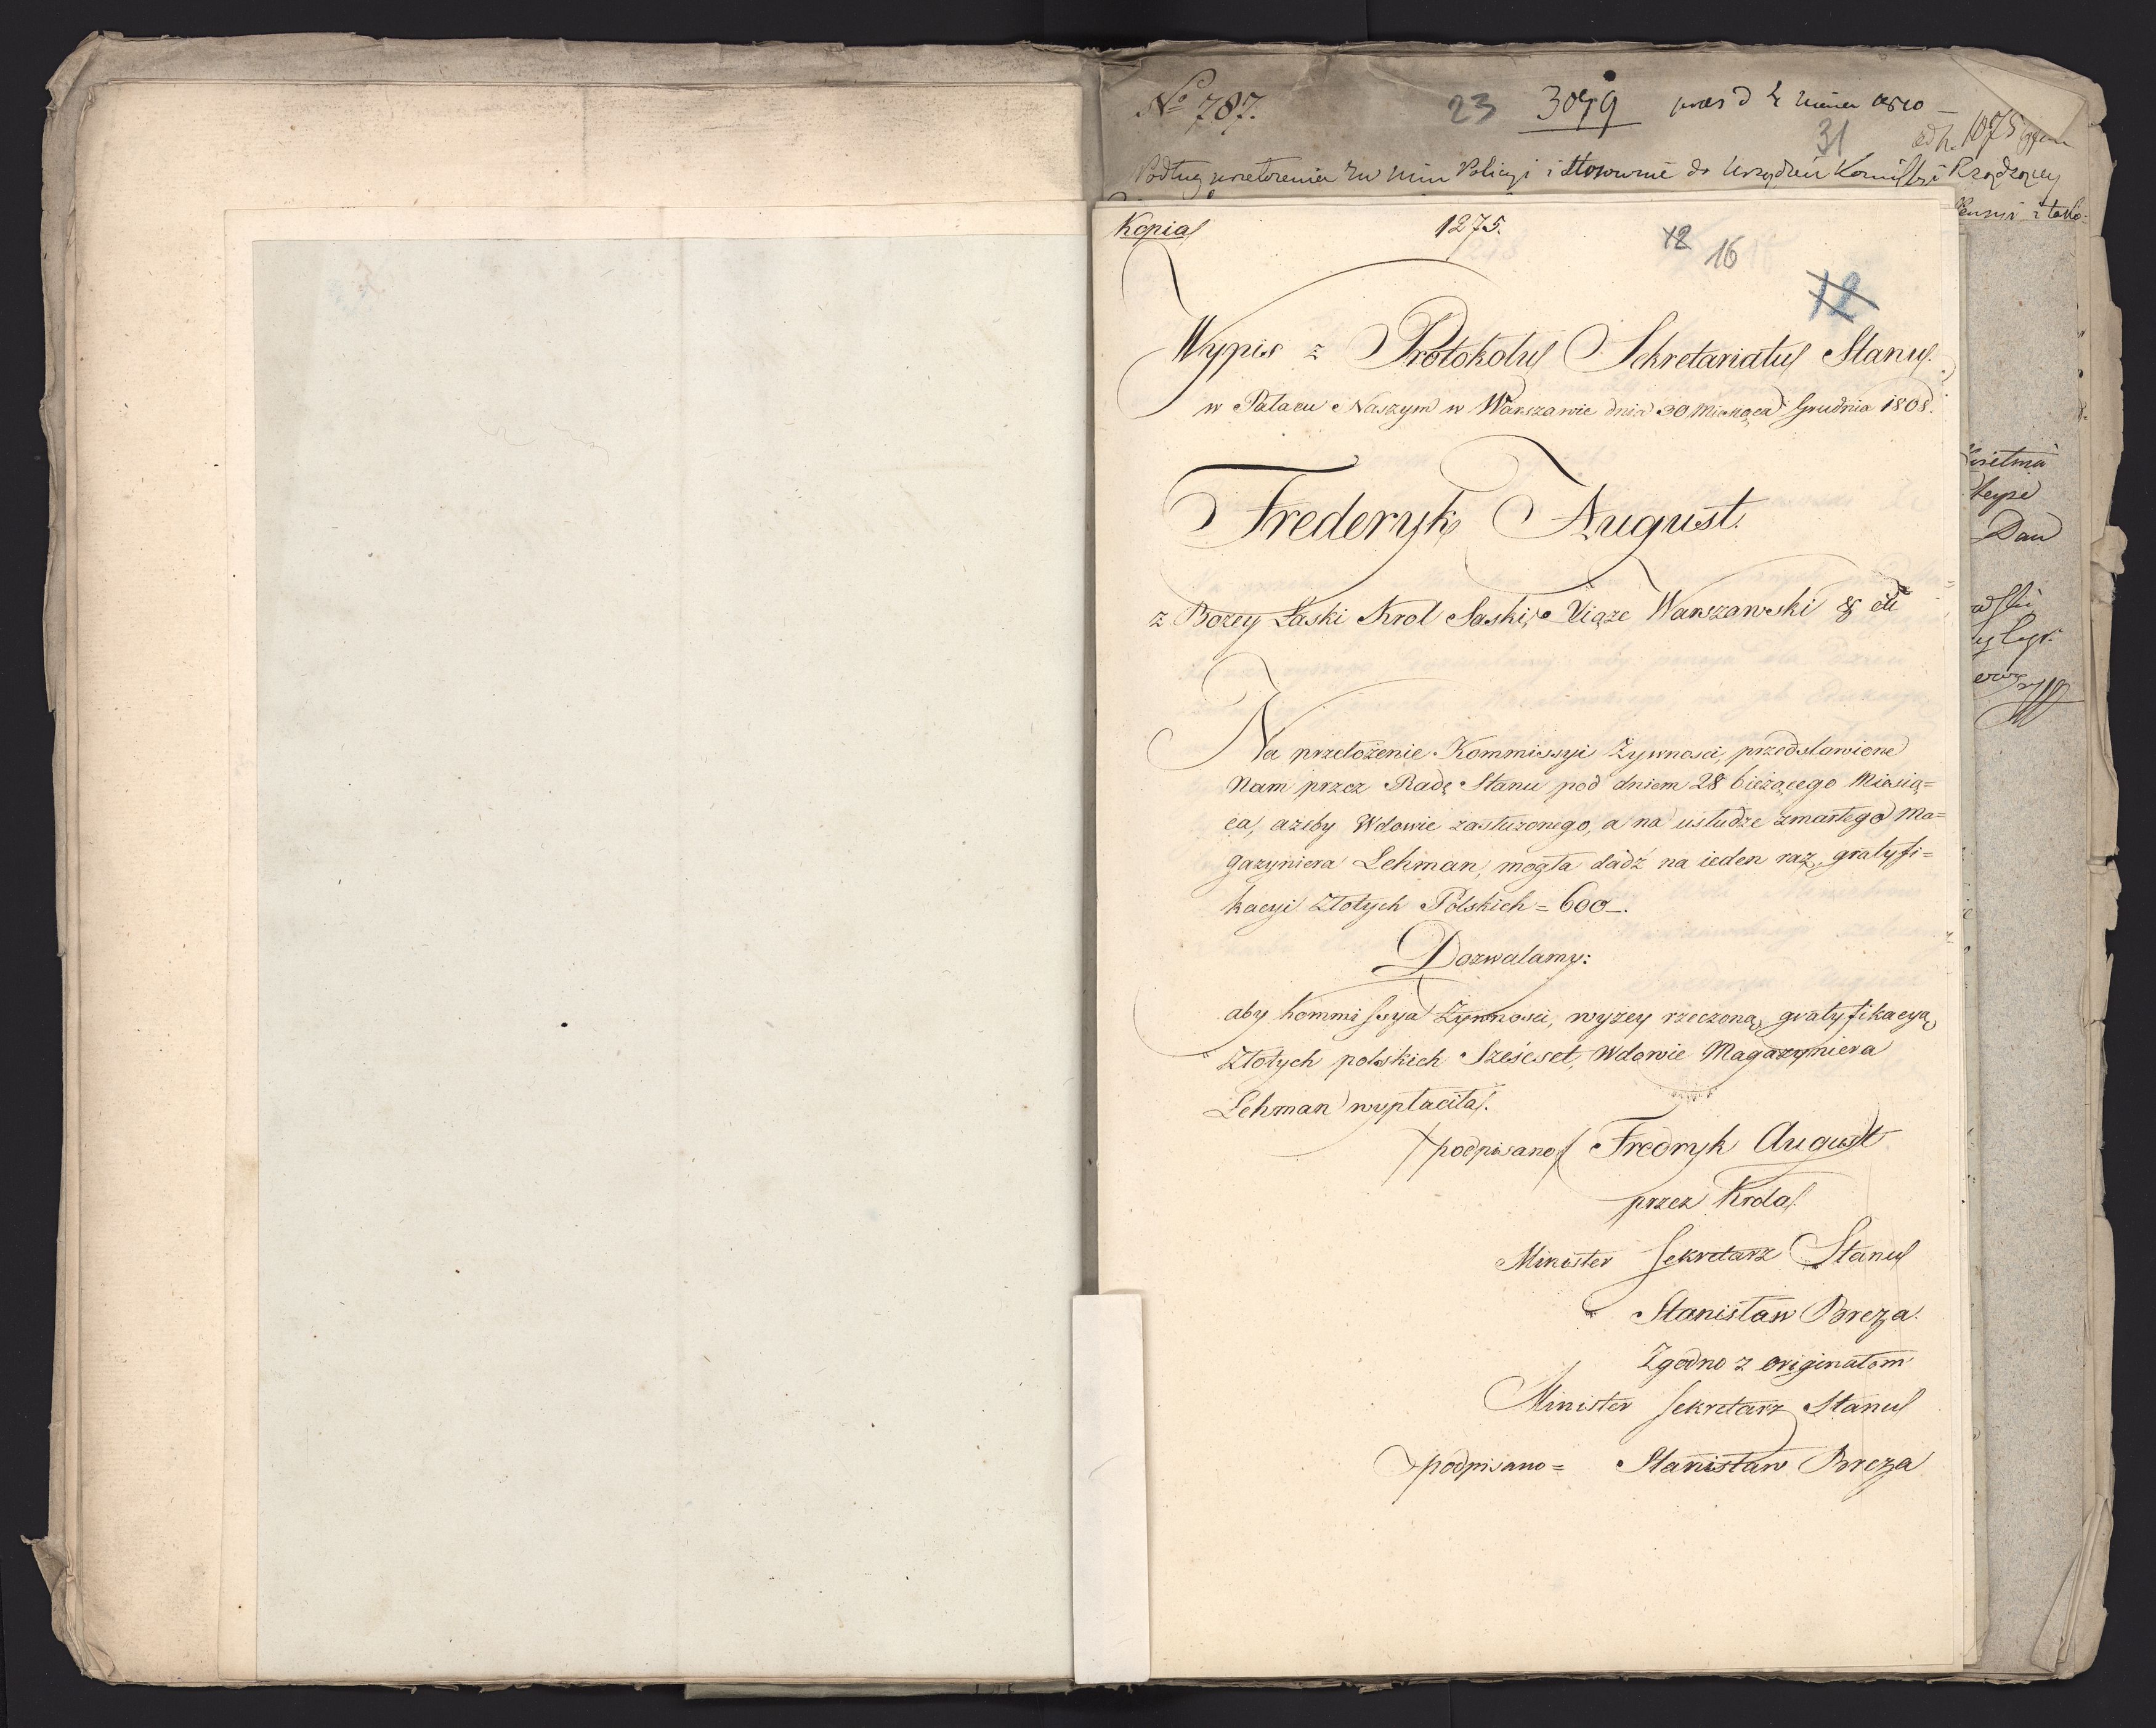 No 787. 23 3079
31
Podług
Kopia 1275. 12 16
12
Wypis z Protokołu Sekretariatu Stanu.
w Pałacu Naszym w Warszawie dnia 30 Miesząca Grudnia 1808.
Frederyk August.
z Bożey Łaski Krol Saski, Xiąze Warszawski & &
Na przełożenie Kommissyi Zywnosci, przedstawione
Nam przez Radę Stanu pod dniem 28 bieżącego Miesią=
ca, ażeby Wdowie zasłuzonego, a na usłudze zmarłego Ma=
gazyniera Lehman, mogła dadź na ieden raz, gratyfi=
kacyi Złotych Polskich = 600 _.
Dozwalamy:
aby Kommissya Zywnosci, wyżey rzeczoną gratyfikacyą,
Złotych polskich Sześcset, Wdowie Magazyniera
Lehman wypłaciła.
/podpisano/ Fredryk August
przez Krola
Minister Sekretarz Stanu
Stanisław Breza.
Zgodno z originałem
Minister Sekretarz Stanu
podpisano = Stanisław Breza